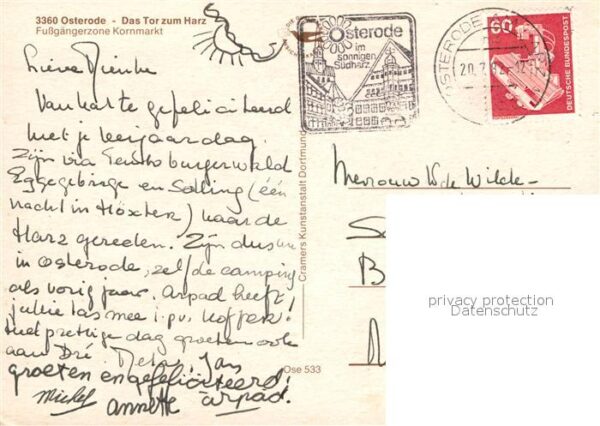 3360 Osterode - Das Tor zum Harz
Fußgängerzone Kornmarkt
Lieve Nienke
Van harte gefeliciteerd
met je verjaardag.
Zijn via Teutoburgerwald
Eggegebirge en Solling (één
nacht in Höxter) naar de
Harz gereden. Zijn dus nu
in Osterode, zelfde camping
als vorig jaar. Arpad heeft
jullie tas mee i.p.v. koffer!
Heel prettige dag groeten ook
aan Dré. Jan
groeten en gefeliciteerd!
Michel annette àrpád.
Cramers Kunstanstalt Dortmund
Ose 533
Osterode
im
sonnigen
Südharz
OSTERODE
20.7.
60
DEUTSCHE BUNDESPOST
Mevrouw de Wilde-
privacy protection
Datenschutz